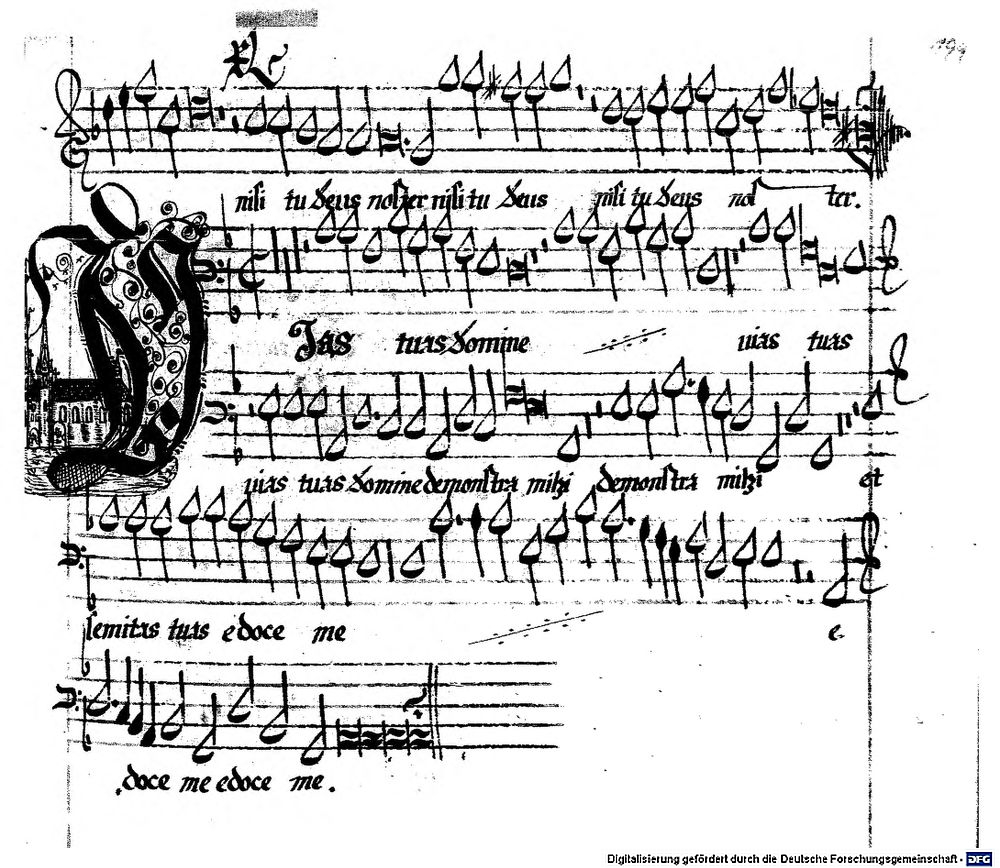 199
nisi tu Deus noster nisi tu Deus nisi tu Deus nos ter.
Vias tuas Domine uias tuas
uias tuas Domine demonstra mihi demonstra mihi et
semitas tuas edoce me e
doce me edoce me.
Digitalisierung gefördert durch die Deutsche Forschungsgemeinschaft - DFG